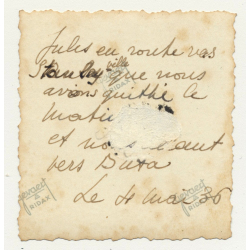 Jules en route vers
Stanleyville que nous
avions quitté le
matin
et nous allant
vers Buta
Le 4 mai 36